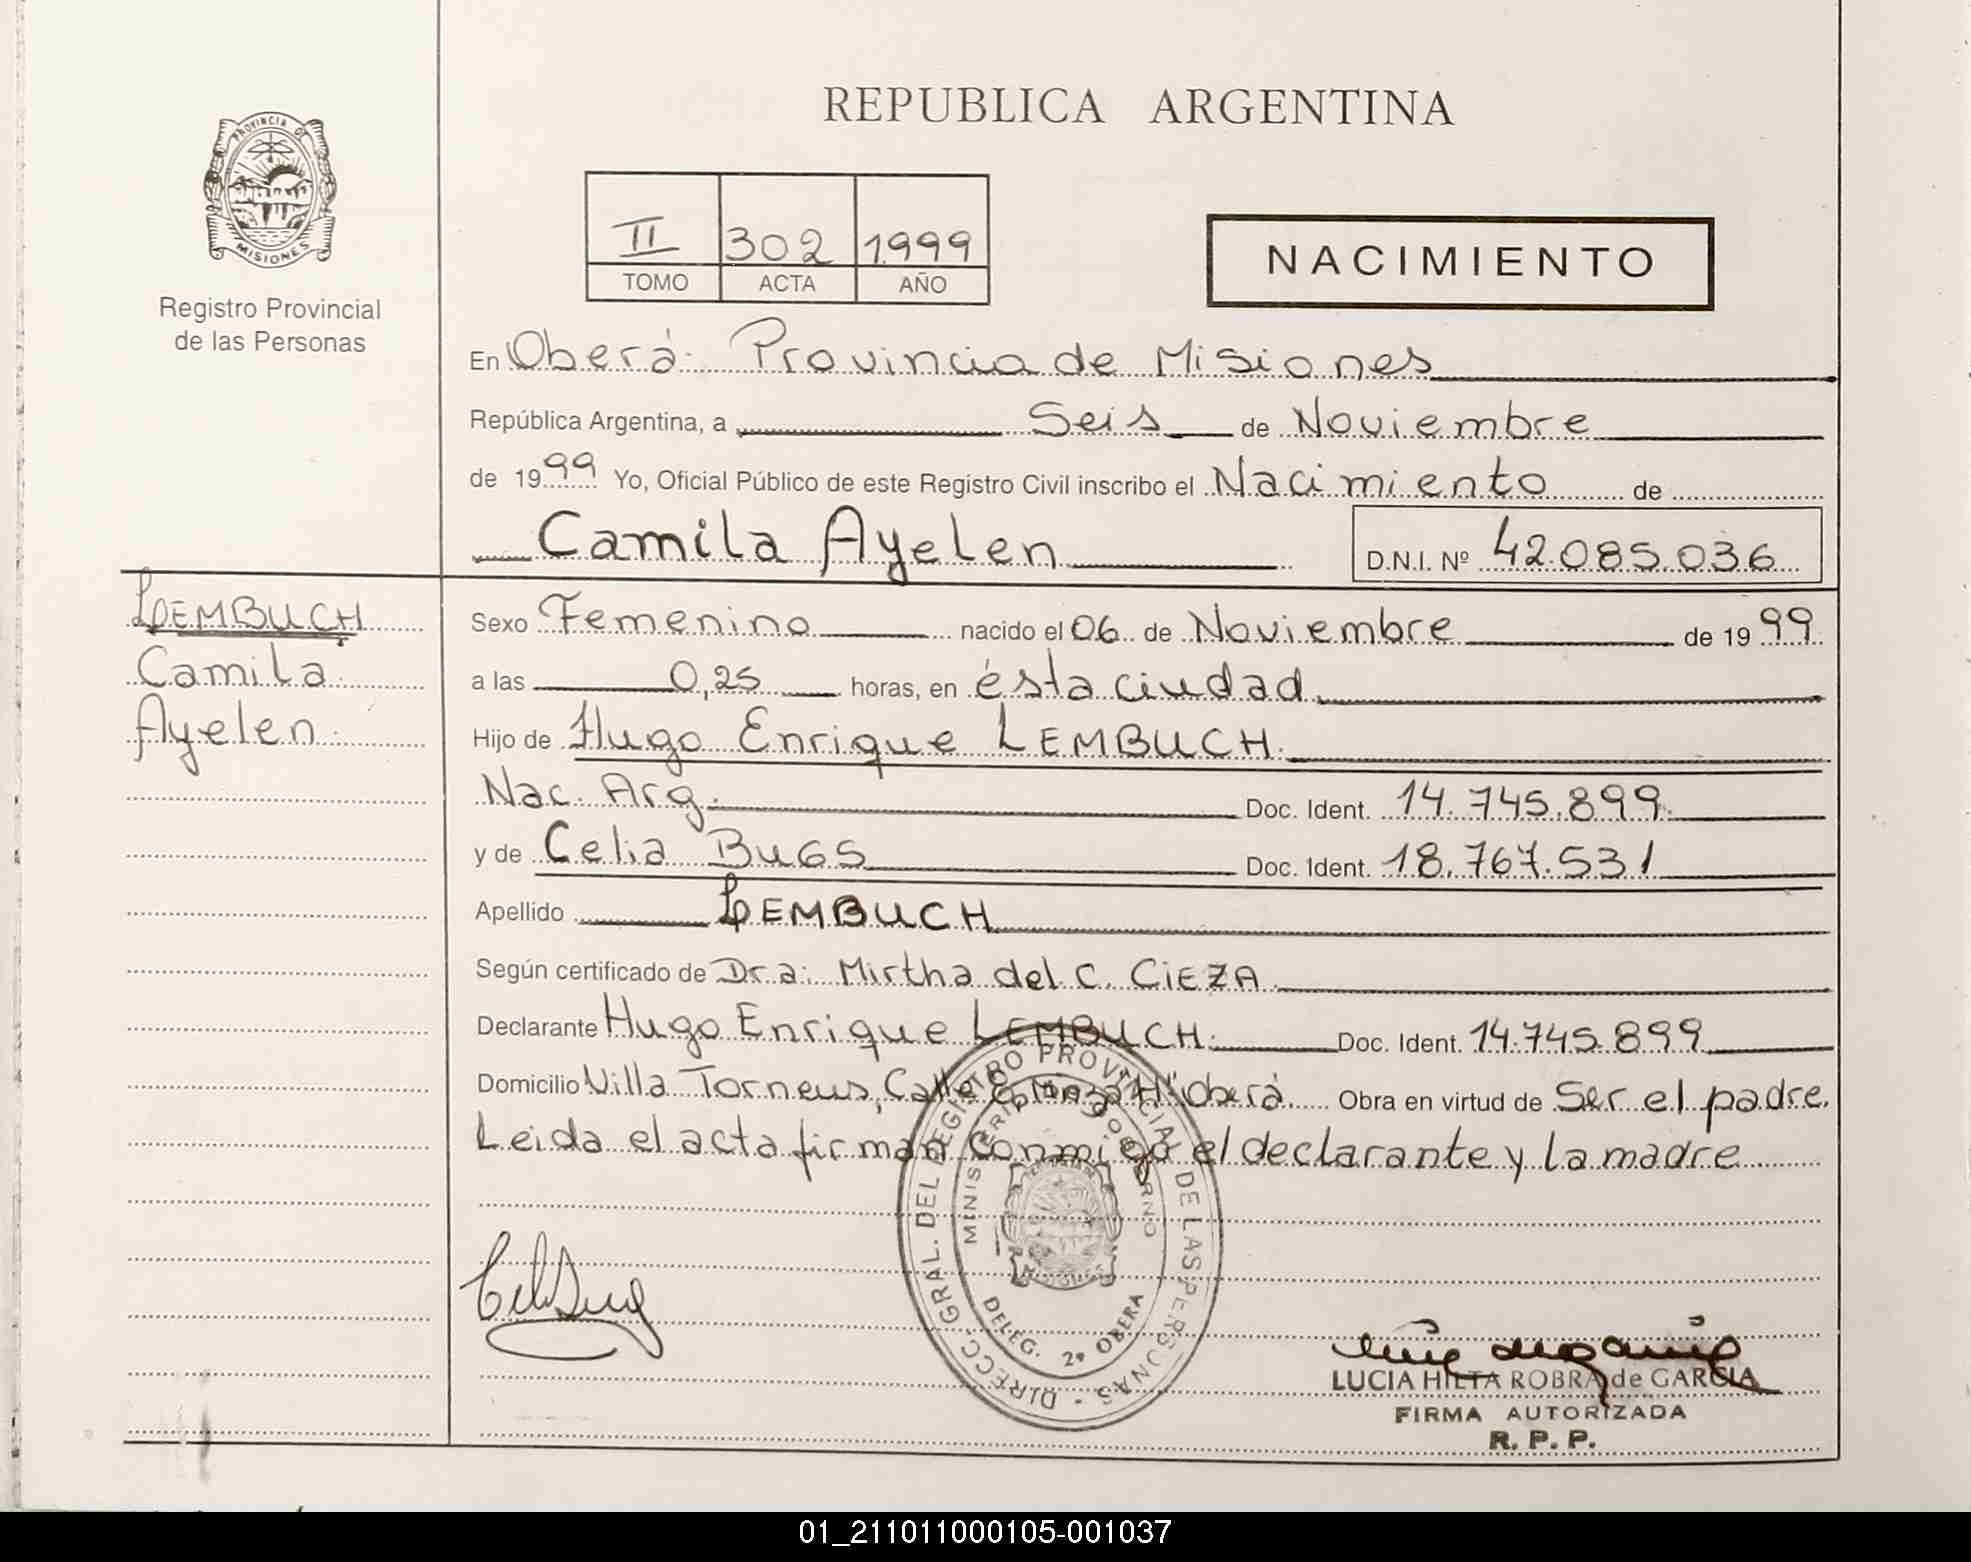 REPUBLICA ARGENTINA
PROVINCIA DE
MISIONES
Registro Provincial
de las Personas
II 302 1999
TOMO ACTA AÑO
NACIMIENTO
En Oberá. Provincia de Misiones
República Argentina, a Seis de Noviembre
de 1999 Yo, Oficial Público de este Registro Civil inscribo el Nacimiento de
Camila Ayelen D.N.I. Nº 42.085.036
LEMBUCH
Camila
Ayelen
Sexo Femenino nacido el 06 de Noviembre de 1999
a las 0,25 horas, en ésta ciudad
Hijo de Hugo Enrique LEMBUCH.
Nac. Arg. Doc. Ident. 14.745.899.
y de Celia BUGS Doc. Ident. 18.767.531
Apellido LEMBUCH
Según certificado de Dra. Mirtha del C. CIEZA
Declarante Hugo Enrique LEMBUCH. Doc. Ident. 14.745.899
Domicilio Villa Torneus, Calle Manza "H" Oberá Obra en virtud de Ser el padre.
Leida el acta firman conmigo el declarante y la madre
DIRECC GRAL. DEL REGISTRO PROVINCIAL DE LAS PERSONAS -
MINISTERIO DE GOBIERNO
DELEG. 2ª OBERA
LUCIA HILTA ROBRA de GARCIA
FIRMA AUTORIZADA
R. P. P.
01_211011000105-001037